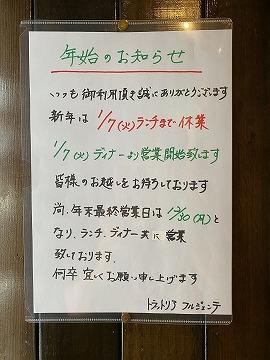 年始のお知らせ
いつも御利用頂き誠にありがとうございます
新年は 1/7(火)ランチまで休業
1/7(火)ディナーより営業開始致します
皆様のお越しをお待ちしております
尚、年末最終営業日は12/30(月)と
なり、ランチ、ディナー共に営業
致しております。
何卒宜しくお願い申し上げます
トラットリア フルジェンテ